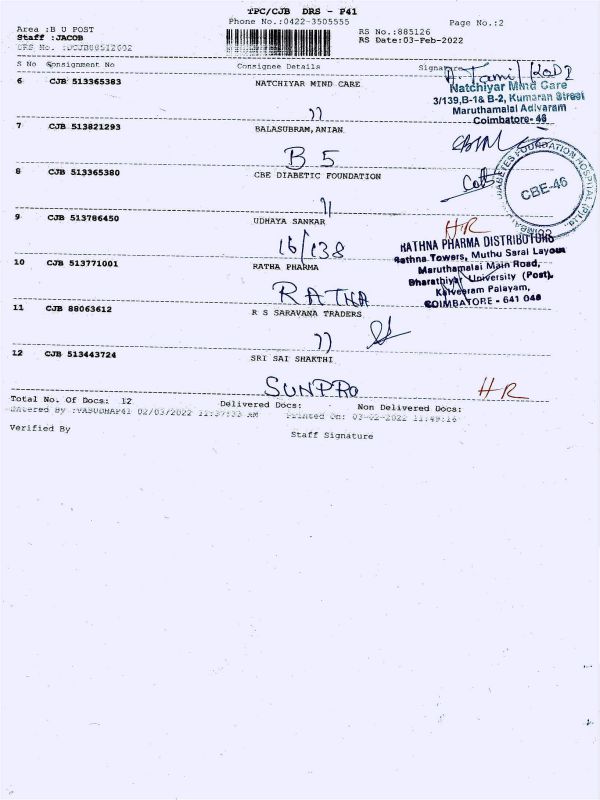 TPC/CJB DRS - P41
Phone No.:0422-3505555 Page No.:2
Area :B U POST RS No.:885126
Staff :JACOB RS Date:03-Feb-2022
DRS No. :DCJB88512602
S No Consignment No Consignee Details Signature
6 CJB 513365383 NATCHIYAR MIND CARE
Natchiyar Mind Care
3/139,B-1& B-2, Kumaran Street
Maruthamalai Adivaram
Coimbatore- 46
7 CJB 513821293 BALASUBRAM,ANIAN
B 5
8 CJB 513365380 CBE DIABETIC FOUNDATION
DIABETES FOUNDATION HOSPITAL (P) Ltd.
CBE-46
9 CJB 513786450 UDHAYA SANKAR
16/138 HR
RATHNA PHARMA DISTRIBUTORS
Rathna Towers, Muthu Sarai Layout
Maruthamalai Main Road,
Bharathiyar University (Post),
Kalveeram Palayam,
COIMBATORE - 641 046
10 CJB 513771001 RATHA PHARMA
RATHA
11 CJB 88063612 R S SARAVANA TRADERS
12 CJB 513443724 SRI SAI SHAKTHI
SUNPRO HR
Total No. Of Docs: 12 Delivered Docs: Non Delivered Docs:
Entered By :VASUDHAP41 02/03/2022 11:37:33 AM Printed On: 03-02-2022 11:49:16
Verified By Staff Signature